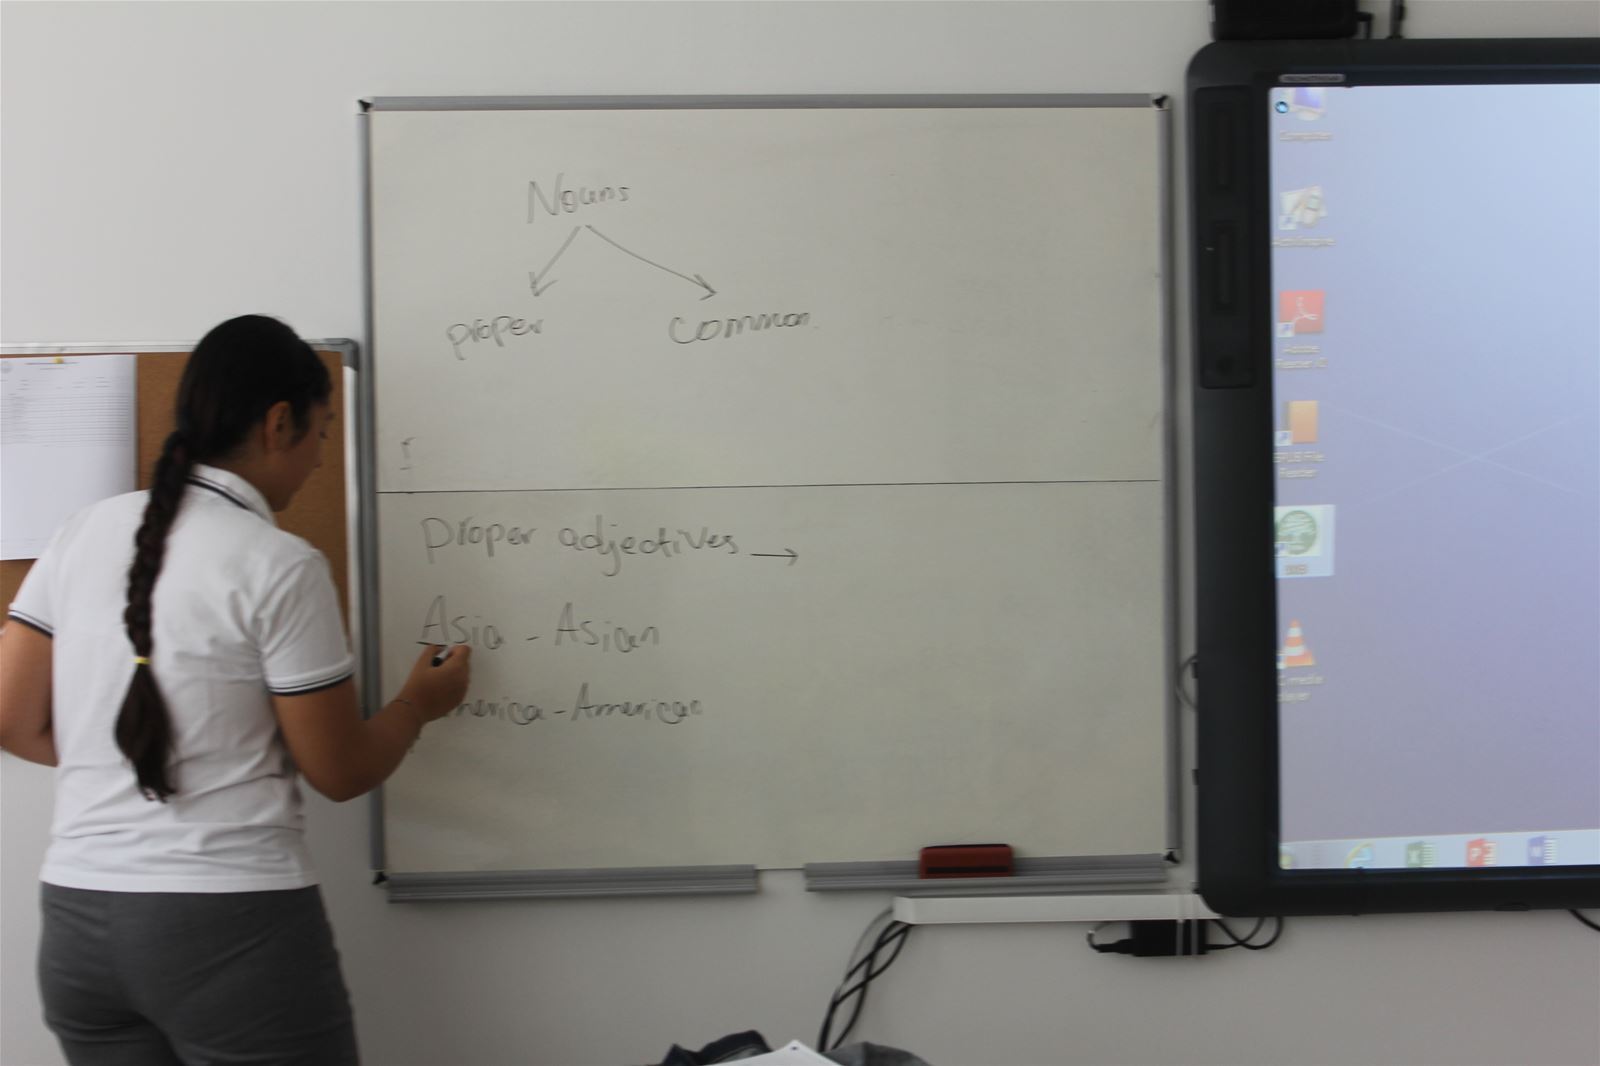 Nouns
proper
common
I
Proper adjectives →
Asia - Asian
America - American
PROMETHEAN
Computer
ActivInspire
Adobe
Reader XI
EPUB File
Reader
VLC media
player